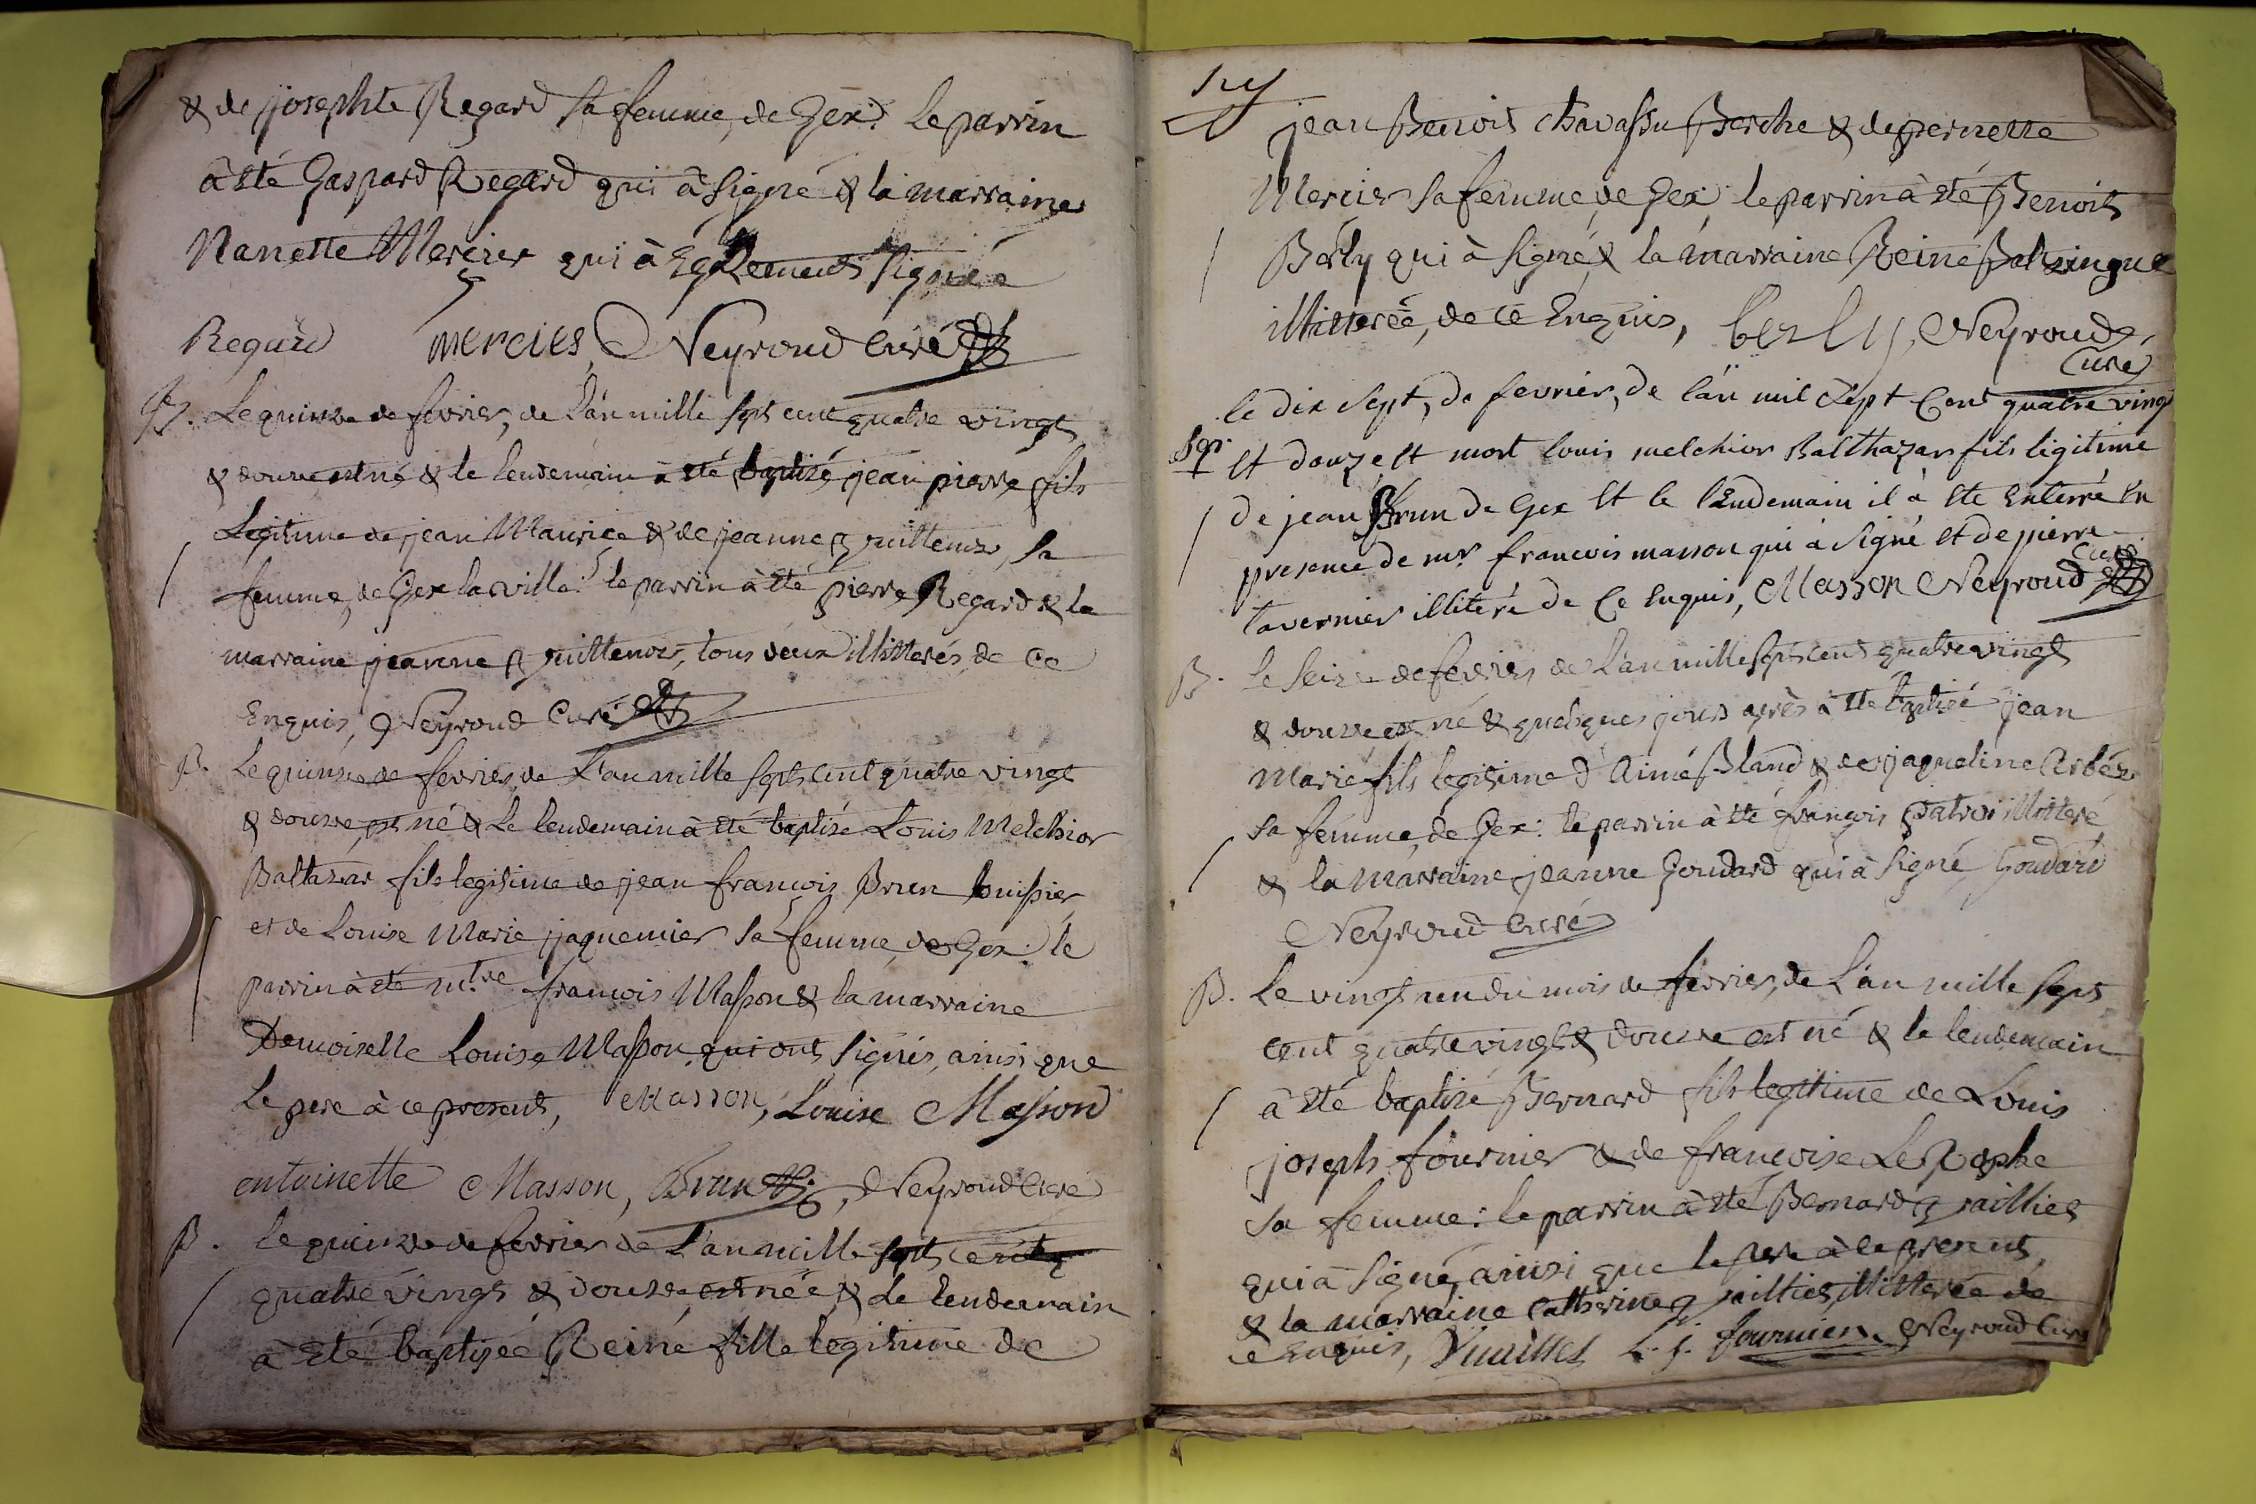 & de josephte Regard sa femme, de Gex. Le parrin
à été Gaspard Regard qui à signé & la marraine
Nanette Mercier qui à Egalement signée
Regard mercies, Neyroud Curé
B. Le quinze de fevrier, de l'an mille sept cent quatre vingt
& douze est né & le lendemain à été baptisé jean pierre fils
Legitime de jean Maurice & de jeanne sa
femme, de Gex la ville: le parrin à été pierre Regard & la
marraine jeanne tous deux illitterés, de ce
Enquis, Neyroud Curé
B. Le quinze de fevrier, de L'an mille sept cent quatre vingt
& douze, est né & Le lendemain à été baptisé Louis Melchior
Baltazar fils legitime de jean françois Brun huissier
et de Louise Marie jaquemier sa femme, de Gex: le
parrin à été m.tre françois Masson & la marraine
Demoiselle Louise Masson qui ont signés, ainsi que
Le pere à ce present, Masson, Louise Masson
antoinette Masson, Brun, Neyroud Curé
B. Le quinze de fevrier de L'an mille sept cent
quatre vingt & douze, est née & Le lendemain
à été baptisée Reine fille legitime de
jean Benoit chavassu Berche & de pernette
Mercier sa femme, de Gex: le parrin à été Benoit
Berly qui à signé & la marraine Reine
illitterée, de ce Enquis, berly, Neyroud
Curé
le dix sept, de fevrier, de l'an mil sept Cent quatre vingt
Sep.r et douze est mort louis melchior Balthazar fils legitime
de jean Brun de Gex et le lendemain il à ete enterré en
presence de mr. francois masson qui à signé et de pierre
tavernier illiteré de Ce enquis, Masson Neyroud Curé
B. Le seize de fevrier de L'an mille sept cent quatre vingt
& douze est né & quelques jours après à été baptisé jean
Marie fils legitime d'Aimé Bland & de jaqueline Arbéz
sa femme, de Gex: le parrin à été françois Patroi illitteré
& la marraine jeanne Goudard qui à signé, Goudard
Neyroud Curé
B. Le vingt un du mois de fevrier, de L'an mille sept
cent quatre vingt & douze est né & le lendemain
à été baptisé Bernard fils legitime de Louis
joseph fournier & de françoise
sa femme: le parrin à été Bernard
qui à signé, ainsi que le pere à ce present,
& la marraine Catherine illitterée de
ce Enquis, L. j. fournier, Neyroud Curé